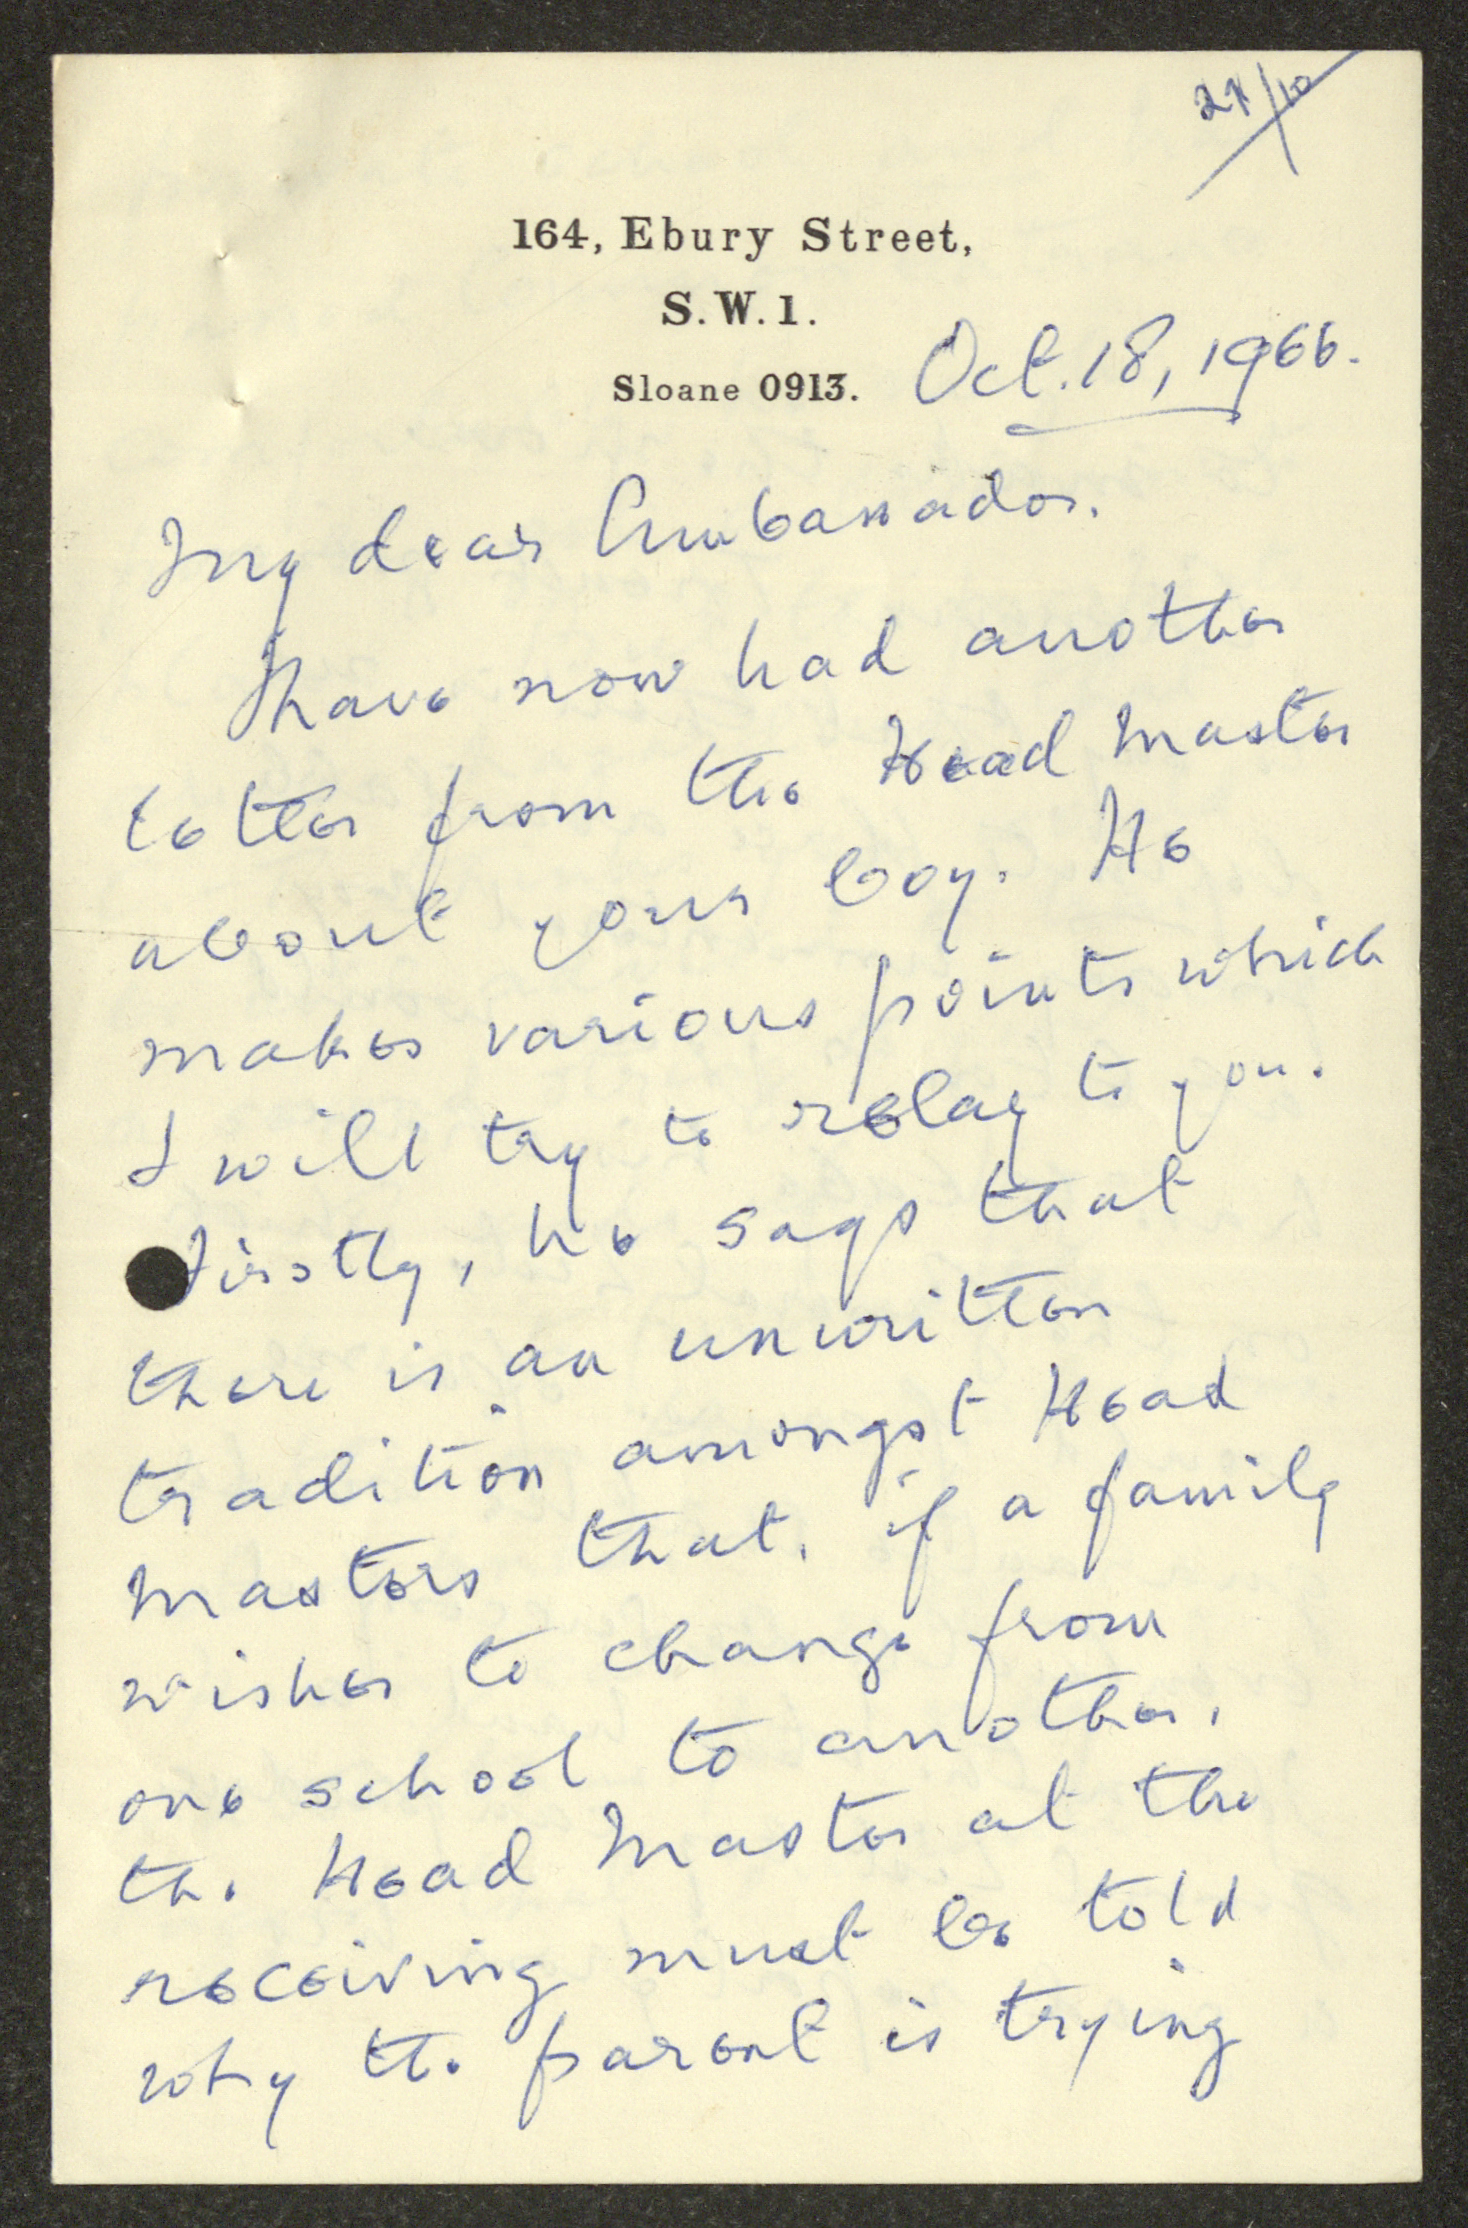 164, Ebury Street,
S.W.1.
Sloane 0913.
Oct. 18, 1966.
My dear Ambassador.
I have now had another
letter from the Head Master
about your boy. He
makes various points which
I will try to relay to you.
Firstly, he says that
there is an unwritten
tradition amongst Head
Masters that, if a family
wishes to change from
one school to another,
the Head Master at the
receiving must be told
why the parent is trying